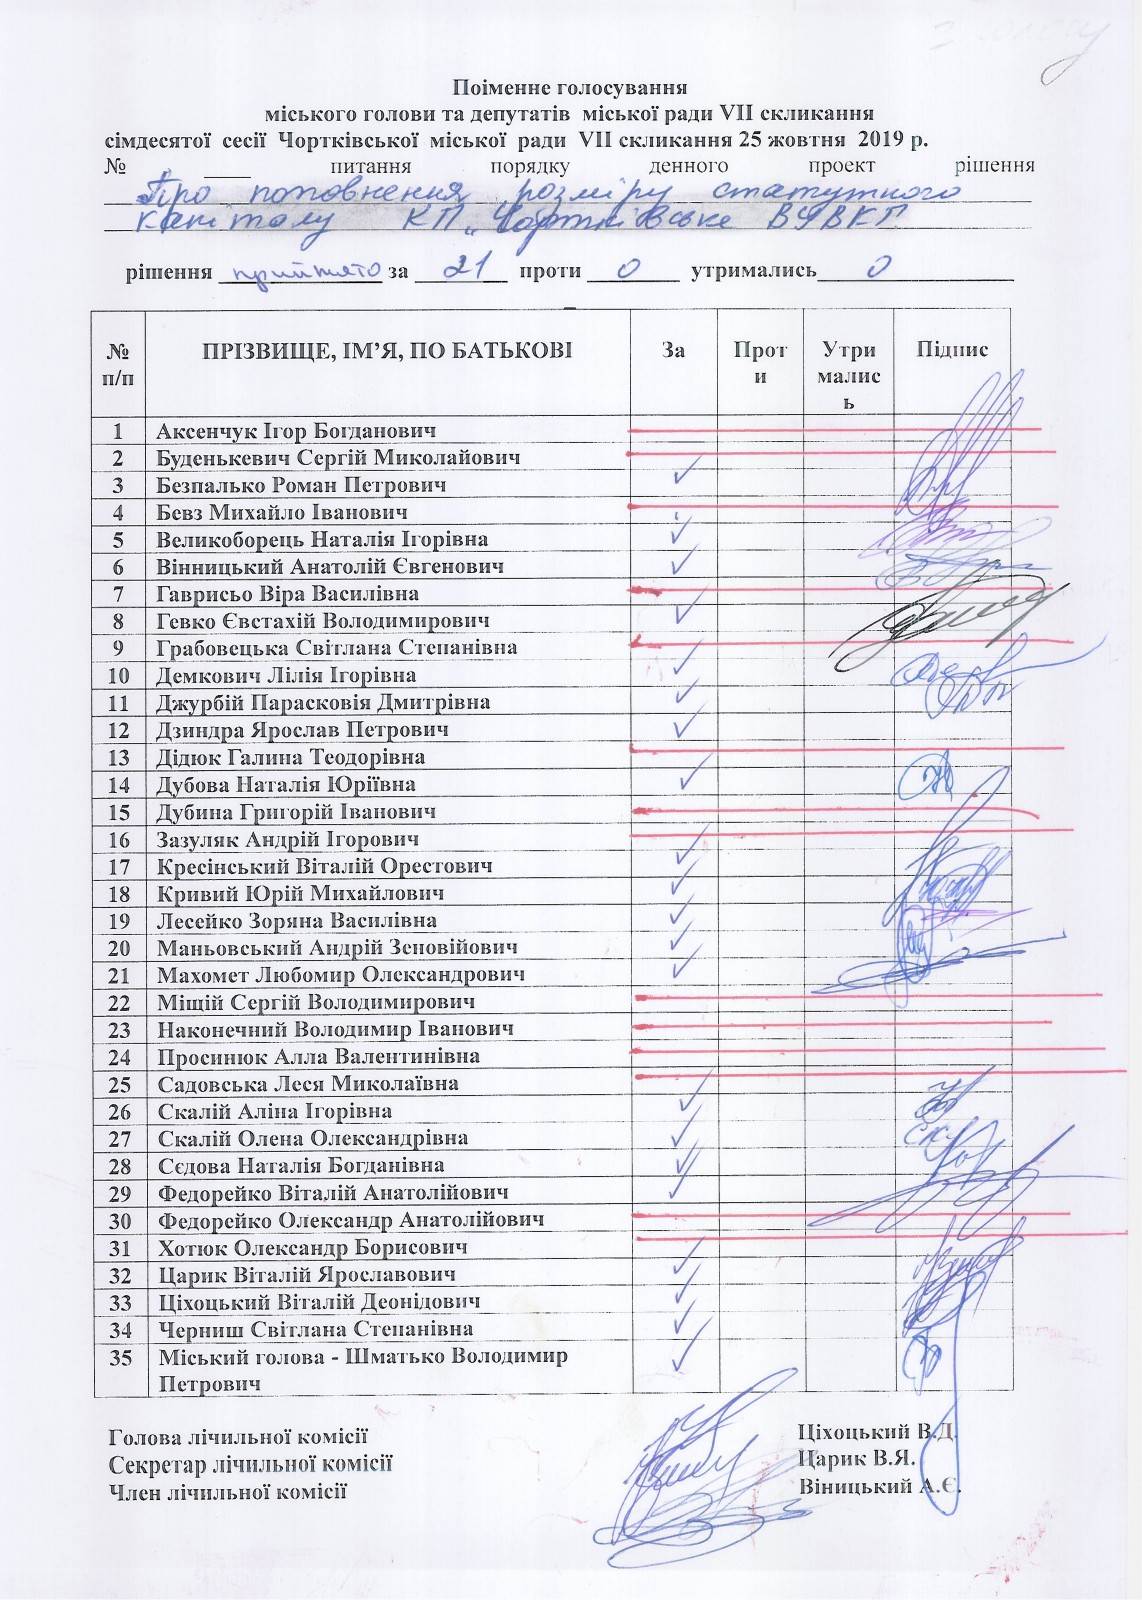 Поіменне голосування
міського голови та депутатів міської ради VII скликання
сімдесятої сесії Чортківської міської ради VII скликання 25 жовтня 2019 р.
№ ____ питання порядку денного проект рішення
Про поповнення розміру статутного
капіталу КП „Чортківське ВУВКГ
рішення прийнято за 21 проти 0 утримались 0
№ п/п ПРІЗВИЩЕ, ІМ’Я, ПО БАТЬКОВІ За Проти Утримались Підпис
1 Аксенчук Ігор Богданович
2 Буденькевич Сергій Миколайович
3 Безпалько Роман Петрович ✓
4 Бевз Михайло Іванович
5 Великоборець Наталія Ігорівна ✓
6 Вінницький Анатолій Євгенович ✓
7 Гаврисьо Віра Василівна
8 Гевко Євстахій Володимирович ✓
9 Грабовецька Світлана Степанівна
10 Демкович Лілія Ігорівна ✓
11 Джурбій Парасковія Дмитрівна ✓
12 Дзиндра Ярослав Петрович ✓
13 Дідюк Галина Теодорівна
14 Дубова Наталія Юріївна ✓
15 Дубина Григорій Іванович
16 Зазуляк Андрій Ігорович
17 Кресінський Віталій Орестович ✓
18 Кривий Юрій Михайлович ✓
19 Лесейко Зоряна Василівна ✓
20 Маньовський Андрій Зеновійович ✓
21 Махомет Любомир Олександрович ✓
22 Міщій Сергій Володимирович
23 Наконечний Володимир Іванович
24 Просинюк Алла Валентинівна
25 Садовська Леся Миколаївна
26 Скалій Аліна Ігорівна ✓
27 Скалій Олена Олександрівна ✓
28 Сєдова Наталія Богданівна ✓
29 Федорейко Віталій Анатолійович ✓
30 Федорейко Олександр Анатолійович
31 Хотюк Олександр Борисович ✓
32 Царик Віталій Ярославович ✓
33 Ціхоцький Віталій Деонідович ✓
34 Черниш Світлана Степанівна ✓
35 Міський голова - Шматько Володимир ✓
Петрович
Голова лічильної комісії Ціхоцький В.Д.
Секретар лічильної комісії Царик В.Я.
Член лічильної комісії Віницький А.Є.